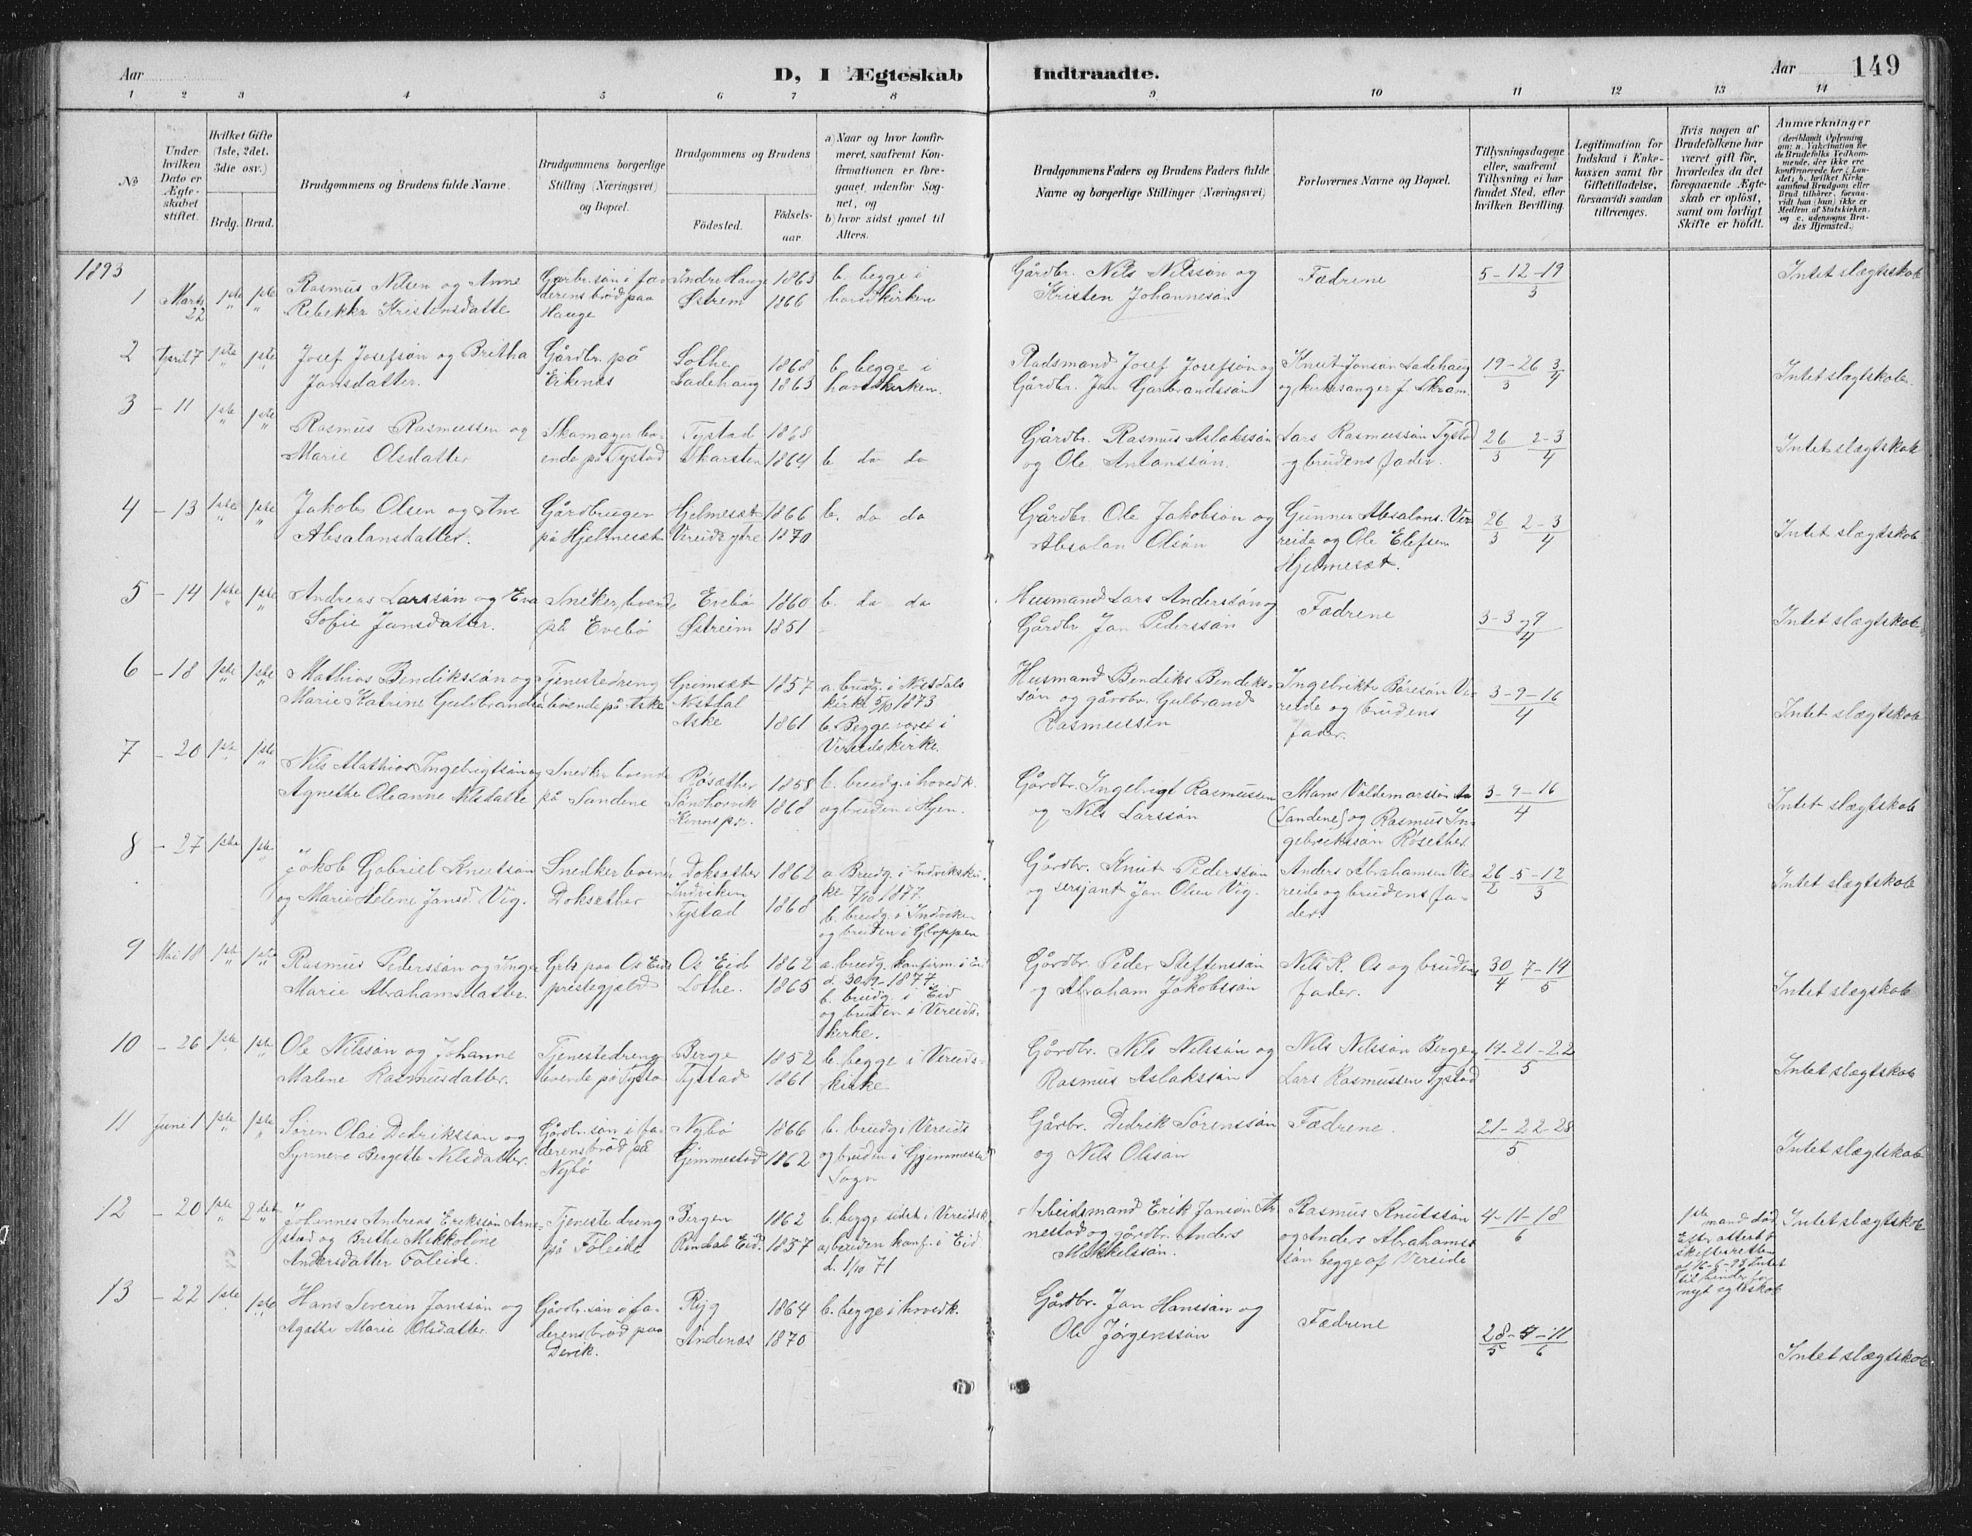 Aar
D, I Ægteskab
Indtraadte.
Aar
149
1 2 3 4 5 6 7 8 9 10 11 12 13 14
No
Under hvilken Dato er Ægteskabet stiftet.
Hvilket Gifte (1ste, 2det, 3die osv.)
Brdg. Brud.
Brudgommens og Brudens fulde Navne.
Brudgommens borgerlige Stilling (Næringsvei) og Bopæl.
Brudgommens og Brudens
Fødested.
Fødselsaar
a) Naar og hvor konfirmeret, saafremt Konfirmationen er foregaaet udenfor Sognet, og
b) hvor sidst gaaet til Alters.
Brudgommens Faders og Brudens Faders fulde Navne og borgerlige Stillinger (Næringsvei)
Forlovernes Navne og Bopæl.
Tillysningsdagene eller, saafremt Tillysning ei har fundet Sted, efter hvilken Bevilling.
Legitimation for Indskud i Enkekassen samt for Giftetilladelse, forsaavidt saadan tiltrænges.
Hvis nogen af Brudefolkene har været gift før, hvorledes da det foregaaende Ægteskab er opløst, samt om lovligt Skifte er holdt.
Anmærkninger
1893
1 Marts 22 1ste 1ste
Rasmus Nilsen og Anne
Rebekka Kristensdatte
Gårbr.søn i fa
derens brød paa
Hauge
Indre Hauge 1863
Østrem 1866
b. begge i
hovedkirken
Gårdbr. Nils Nilssøn og
Kristen Johannesøn
Fædrene
5-12-19
3
Intet slægtskab
2 April 7 1ste 1ste
Josef Josefsøn og Britha
Jansdatter.
Gårdbr. på
Eikenæs
Lothe 1868
Ladehaug 1863
b. begge i
hovedkirken.
Radsmand Josef Josefsøn og
Gårdbr. Jan Garbrandssøn
Knut Jonsøn Ladehaug
og kirkesanger J. Skram.
19-26 3
3 4
Intet slægtskab.
3 - 11 1ste 1ste
Rasmus Rasmussen og
Marie Olsdatter
Skomager bo-
ende på Tystad
Tystad 1868
Skarsten 1864
b. do do
Gårdbr. Rasmus Aslakssøn
og Ole Antonssøn.
Lars Rasmussøn Tystad
og brudens fader.
26 2-3
3 4
Intet slægtskab
4 - 13 1ste 1ste
Jakob Olsen og Ane
Absalonsdatter.
Gårdbruger
på Hjelmesæt
Hjelmesæt 1866
Vereide ytre 1870
b. do do
Gårdbr. Ole Jakobsøn og
Absalon Olsøn
Gunner Absalons. Ve-
reide og Ole Elefsen
Hjelmesæt.
26 2-3
3 4
Intet slægtskab
5 - 14 1ste 1ste
Andreas Larssøn og Eva
Sofie Jansdatter.
Snéker, boende
på Evebø
Evebø 1860
Østreim 1851
b. do do
Husmand Lars Anderssøn og
Gårdbr Jan Pederssøn
Fædrene
3-3-9
4
Intet slægtskab
6 - 18 1ste 1ste
Mathias Bendikssøn og
Marie Katrine Gulbrands
Tjenestedreng
boende på Aske
Grimsæt
Nosdal
Aske
1857
1861
a. brudg. i Nosdals
kirke 5/10 1873
b. Begge været i
Vereids kirke.
Husmand Bendiks Bendeks-
søn og gårdbr. Gulbrand
Rasmussen
Ingebrikt Børesøn Ve-
reide og brudens
fader.
3-9-16
4
Intet slægtskab
7 - 20 1ste 1ste
Nils Mathias Ingebrigtsøn og
Agnethe Oleanne Nilsdatte
Snedker boende
på Sandene
Røsæther 1858
Sønskorvik 1868
Kinns pr.
b. brudg. i hovedk.
og bruden i Hjen.
Gårdbr. Ingebrigt Rasmussen
og Nils Larssøn
Mons Valdemarssøn
(Sandene) og Rasmus In-
gebriktssøn Røsæther
3-9-16
4
Intet slægtskab
8 - 27 1ste 1ste
Jakob Gabriel Knutsøn
og Marie Helene Jansd. Vig.
Snedker boende
Doksæther
Doksæther 1862
Indviken
Tystad 1868
a. Brudg. i Indvikskir-
ke 7/10 1877.
b. brudg. i Indviken
og bruden i Gloppen
Gårdbr. Knut Pederssøn
og sersjant Jan Olsen Vig.
Anders Abrahamsen Ve-
reide og brudens fa-
der.
26 5-12
2 3
Intet slægtskab
9 Mai 18 1ste 1ste
Rasmus Pederssøn og Inger
Marie Abrahamsdatter.
Grbr. paa Os Eids
prestegjæld
Os Eid 1862
Lothe. 1865
a. brudg. konfirm. i Eid
d. 30/9 1877.
b. brudg. i Eid
og bruden i Vereids-
kirke.
Gårdbr. Peder Steffenssøn
og Abraham Jakobssøn
Nils R. Os og brudens
fader.
30 7-19
4 5
Intet slægtskab
10 - 26 1ste 1ste
Ole Nilssøn og Johanne
Malene Rasmusdatter.
Tjenestedreng
boende på Tysta
Berge 1852
Tystad 1861
b. begge i Vereids-
kirke
Gårdbr. Nils Nilssøn og
Rasmus Aslakssøn
Nils Nilssøn Berge og
Lars Rasmussen Tystad
14-21-22
5
Intet slægtskab
11 Juni 1 1ste 1ste
Søren Olai Dedrikssøn og
Synneve Bergette Nilsdatter.
Gårdbr. søn i fa-
derens brød på
Nybø
Nybø 1866
Gimmestad 1862
b. brudg. i Vereids
og bruden i Gjemmestad
Sogn
Gårbr. Dedrik Sørenssøn
og Nils Olssøn
Fædrene.
21-22-28
5
Intet slægtskab
12 - 20 1ste 2det
Johannes Andreas Erikssøn Arne-
stad og Brithe Mikkoline
Andersdatter Føleide.
Tjenestedreng
på Føleide
Bergen 1862
Rondal Eid. 1857
b. begge sidst i Vereidsk
a. bruden konf. i Eid
d. 1/10 71
Arbeidsmand Erik Jansøn Ar-
nestad og gårdbr. Anders
Mikkelssøn.
Rasmus Knutssøn
og Anders Abrahams-
søn begge af Vereide
4-11-18
6
1ste mand død
Efter attest f.
skifteretten
af 16-6-93 Intet
til hinder for
nyt egteskab
Intet slægtskab
13 - 22 1ste 1ste
Hans Severin Janssøn og
Agathe Marie Olsdatter.
Gårdbr. søn i fa-
derens brød paa
Devik.
Ryg 1864
Andenæs 1870
b. begge i hovedk.
Gårdbr. Jan Hanssøn og
Ole Jørgenssøn
Fædrene
28-4-11
5 6
Intet slægtskab